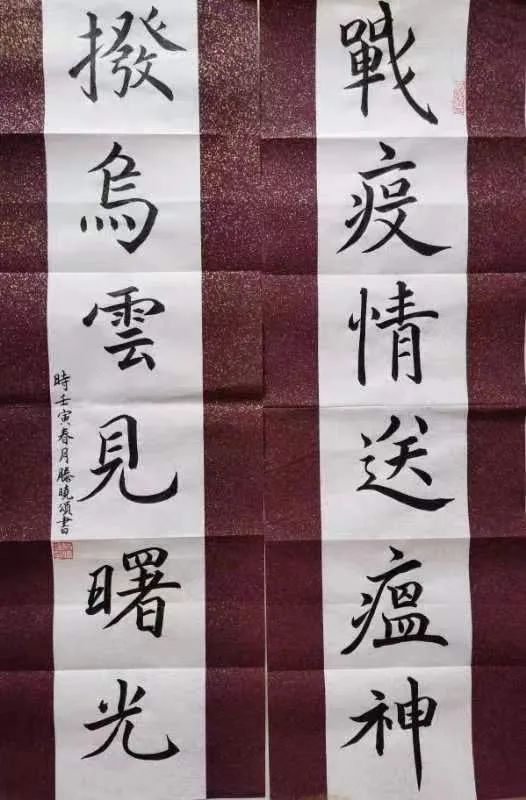 戰疫情送瘟神
撥烏雲見曙光
時壬寅春月滕曉頌書